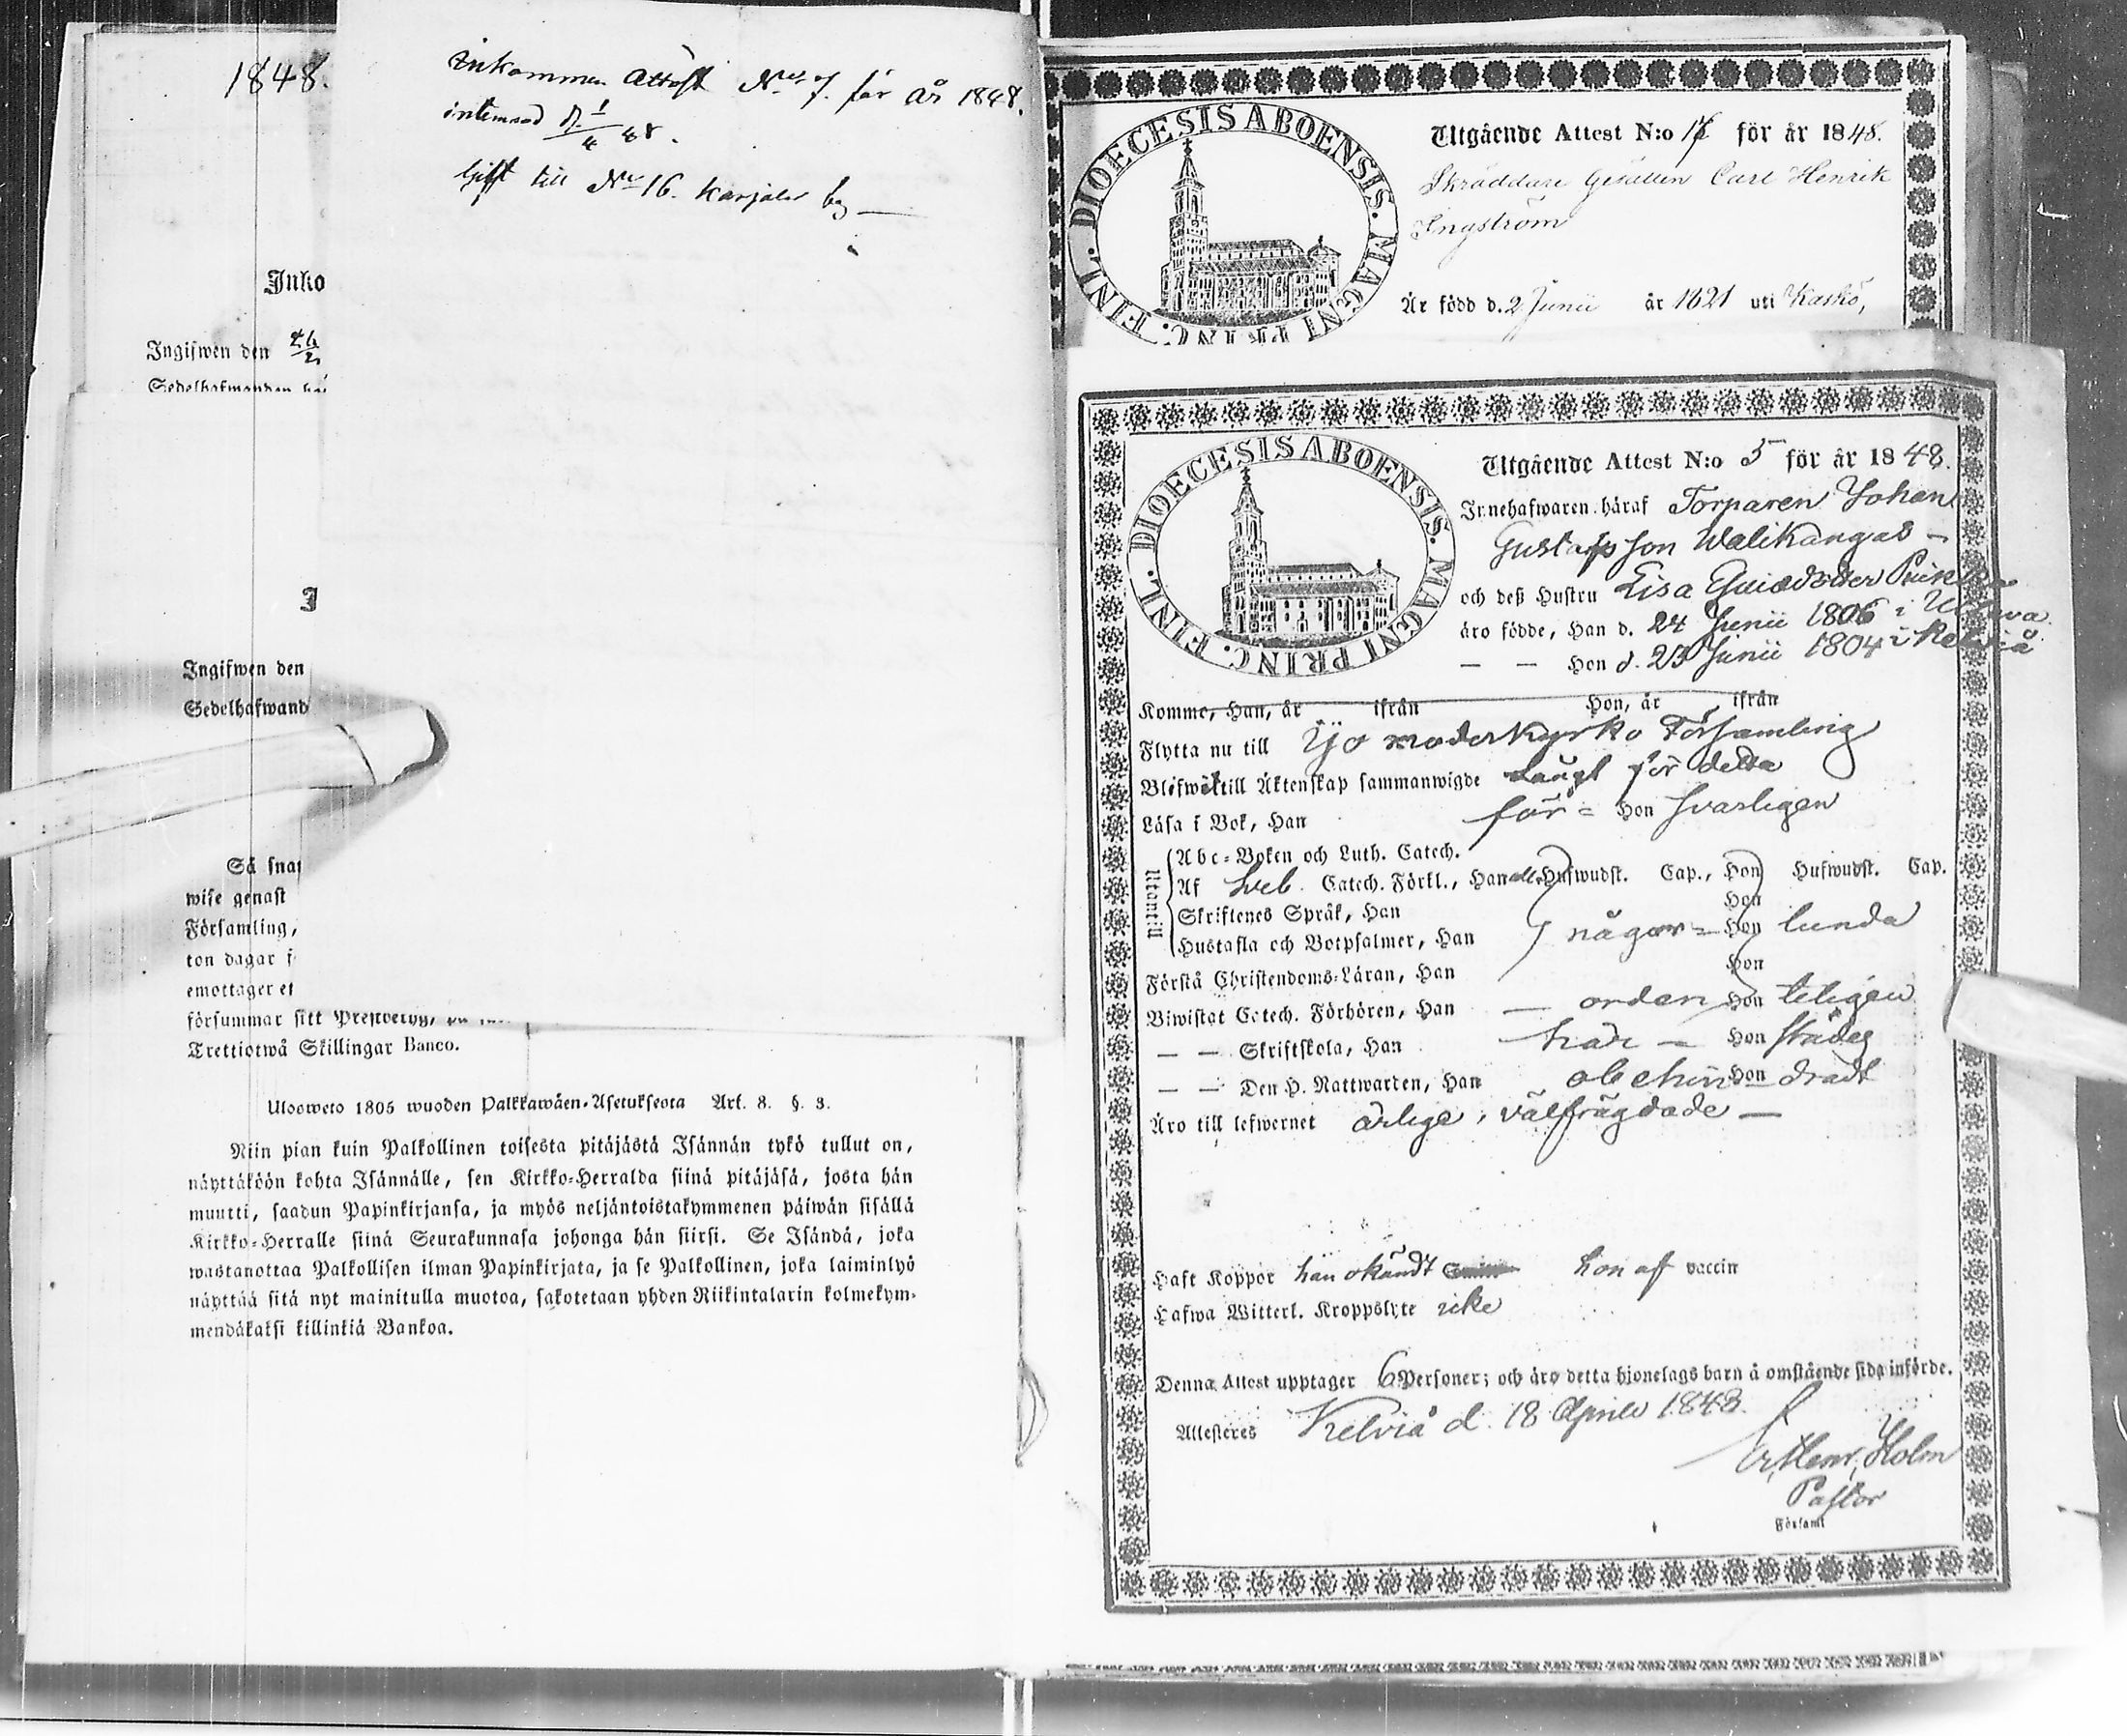 1848.
Inkommen Attest No 7. för år 1848.
Gift till No 16. Karjala by
Inko
Ingifwen den
Ingifwen den
Sedelhafwand
Så snar
wise genast
Församling,
ton dagar f
emottager et
försummar sitt
Trettiotwå Skillingar Banco.
Uloosweto 1805 wuoden Palkkawäen-Asetuksesta Art. 8. §. 3.
Niin pian kuin Palkollinen toisesta pitäjästä Isännän tykö tullut on,
näyttäköön kohta Isännälle, sen Kirkko-Herralda siinä pitäjäsä, josta hän
muutti, saadun Papinkirjansa, ja myös neljäntoistakymmenen päiwän sisällä
Kirkko-Herralle siinä Seurakunnasa johonga hän siirsi. Se Isändä, joka
wastanottaa Palkollisen ilman Papinkirjata, ja se Palkollinen, joka laiminlyö
näyttää sitä nyt mainitulla muotoa, sakotetaan yhden Riikintalarin kolmekym-
mendäkaksi killinkiä Bankoa.
FINL. DIOECESIS ABOENSIS. MAGNI PRINC.
Utgående Attest N:o 17 för år 1848.
Skräddare Gesällen Carl Henrik
Ingström
Är född d. 2 Junii år 1821 uti Kaskö,
FINL. DIOECESIS ABOENSIS. MAGNI PRINC.
Utgående Attest N:o 5 för år 1848.
Innehafwaren häraf Torparen Johan
Gustafsson Walikangas -
och deß Hustru Lisa
äro födde, Han d. 24 Junii 1806 i
— — Hon d. 23 Junii 1804 i Kelviå
Komme, Han, år ifrån Hon, år ifrån
Flytta nu till Ijo moderkyrko Församling
Blifwit till Äktenskap sammanwigde långt för detta
Läsa i Bok, Han för= Hon svarligen
Utantill
Abc-Boken och Luth. Catech.
Af Sveb. Catech. Förkl., Han all. Hufwudst. Cap., Hon Hufwudst. Cap.
Skriftenes Språk, Han Hon
Hustafla och Botpsalmer, Han någor= Hon lunda
Förstå Christendoms-Läran, Han Hon
Biwistat Catech. Förhören, Han — orden Hon teligen
— — Skriftskola, Han Hon
— — Den H. Nattwarden, Han obehin Hon dradt
Äro till lefwernet ärlige, välfrägdade —
Haft Koppor han okändt hon af vaccin
Hafwa Witterl. Kroppslyte icke
Denna Attest upptager 6 Personer; och äro detta hjonelags barn å omstående sida införde.
Attesteres Kelviå d. 18 Aprile 1848.
Er. Henr. Holm
Pastor
Församl